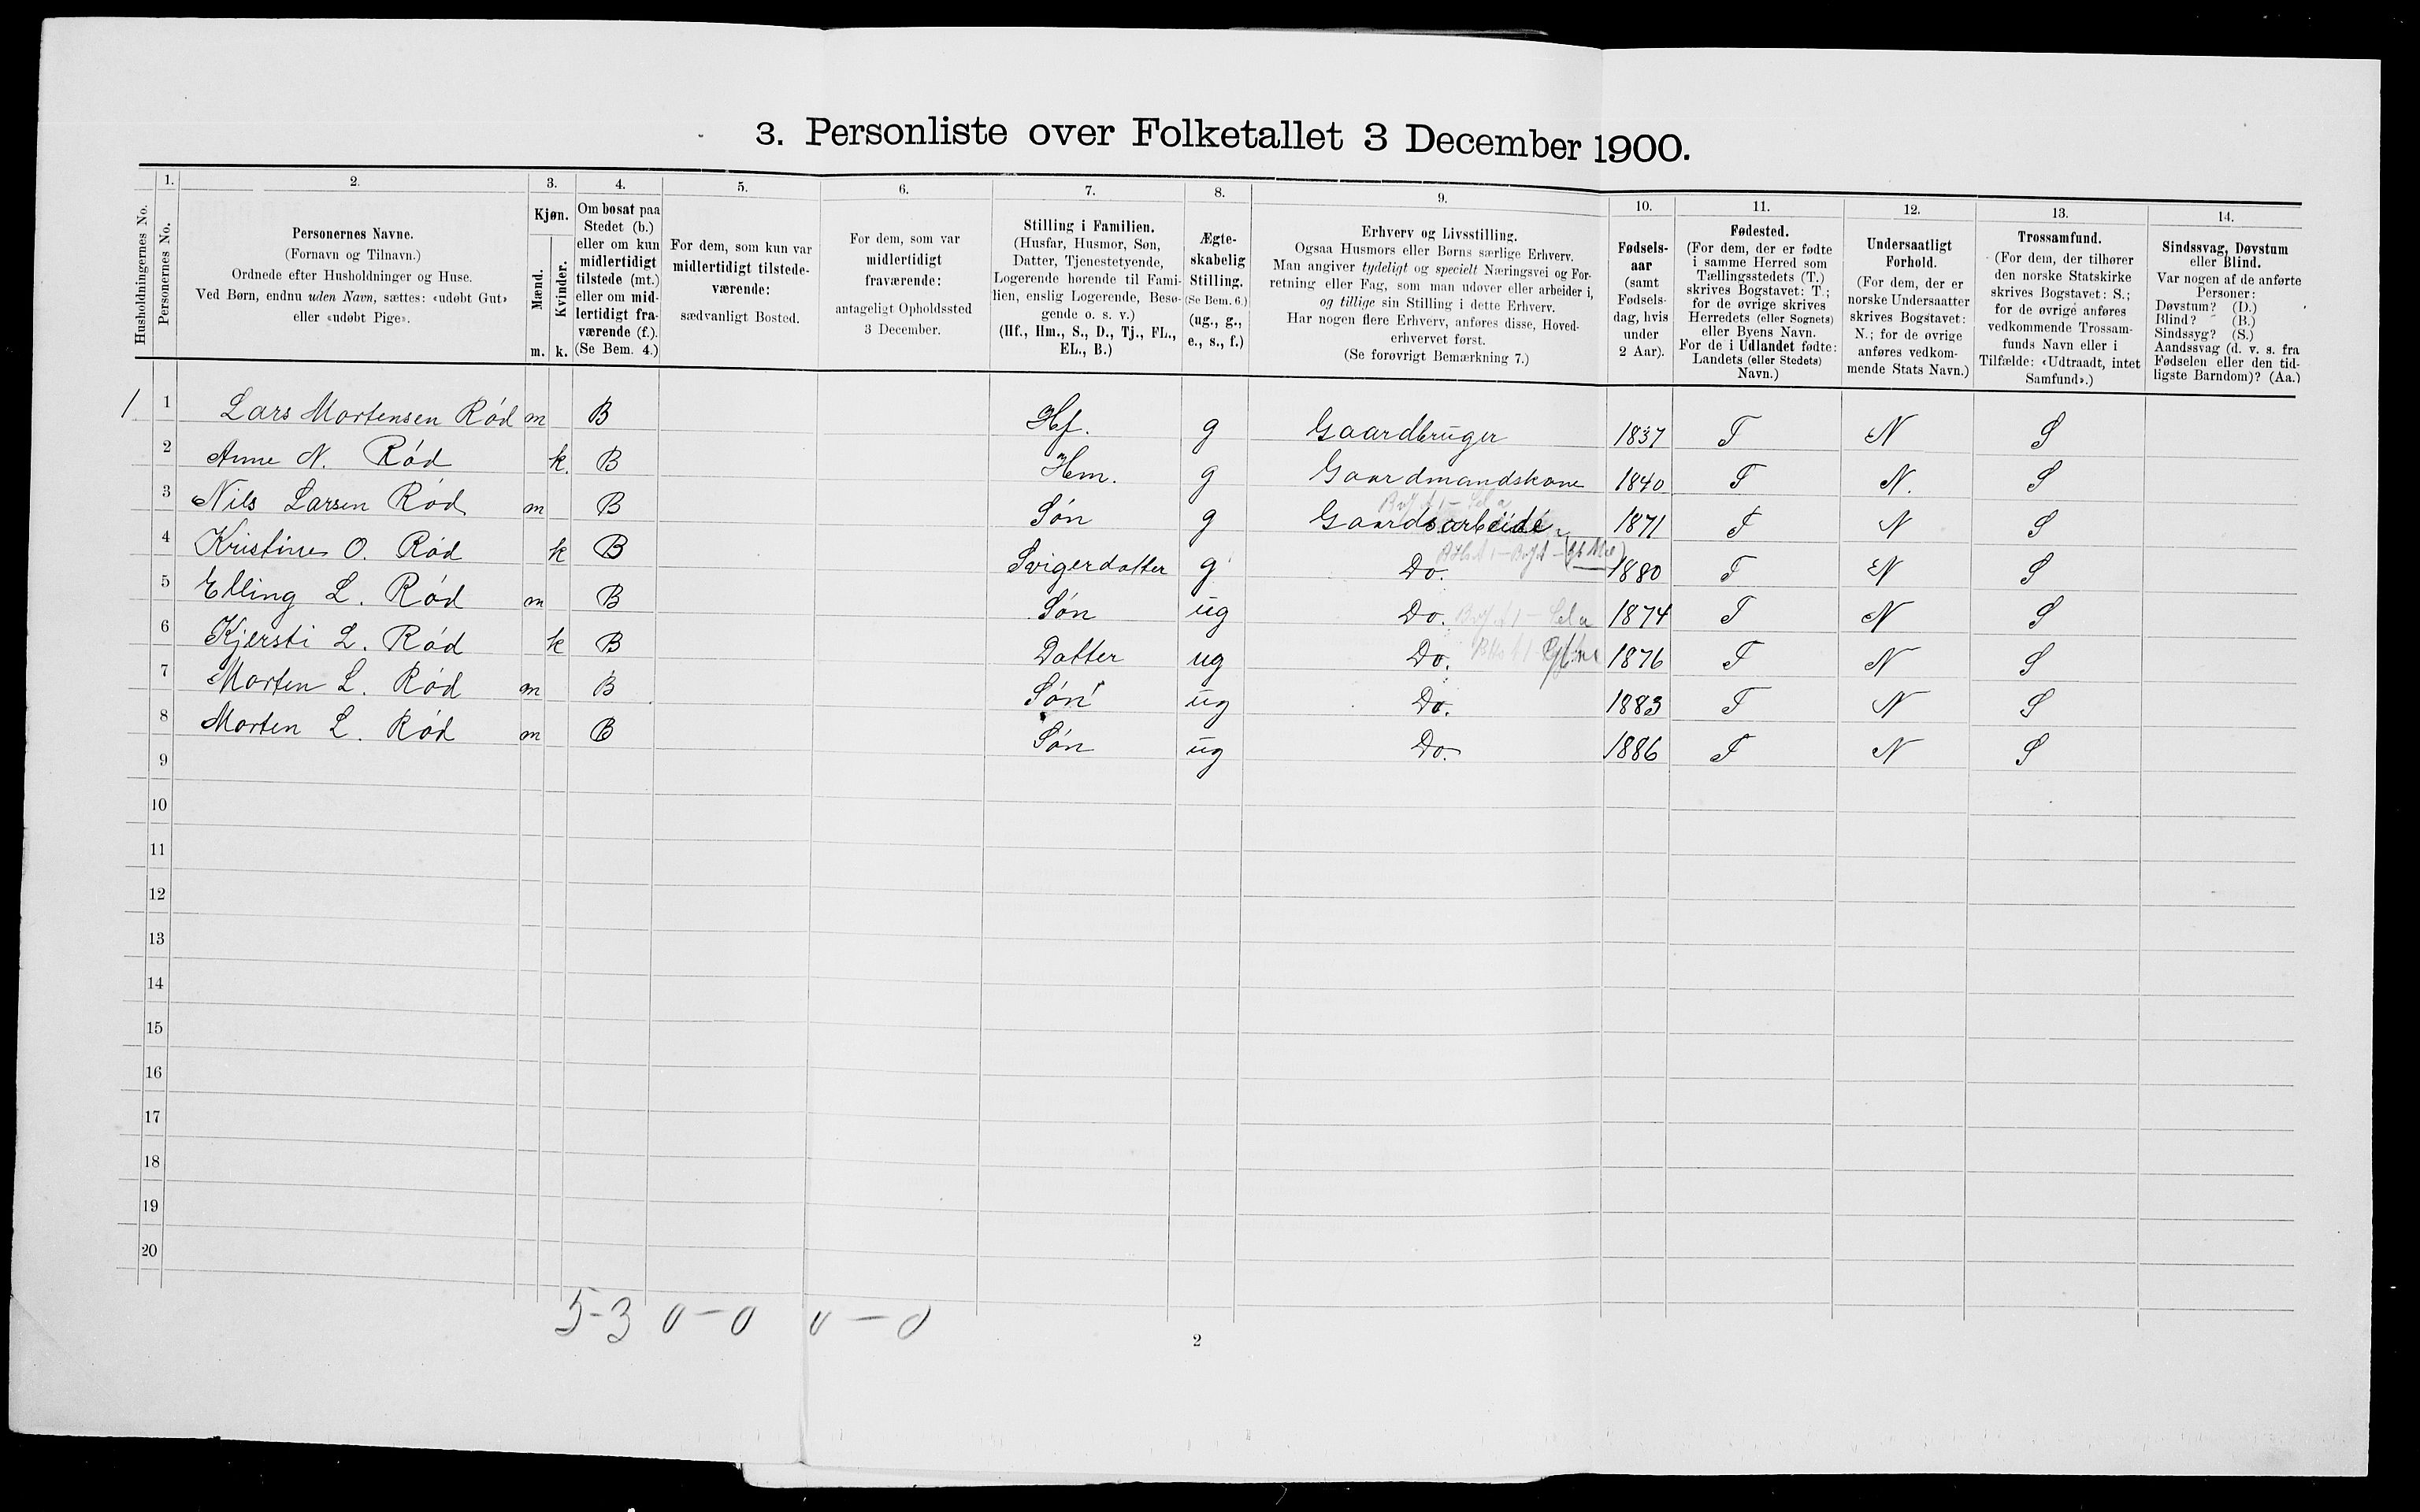 3. Personliste over Folketallet 3 December 1900.
1. 2. 3. 4. 5. 6. 7. 8. 9. 10. 11. 12. 13. 14.
Husholdningernes No.
Personernes No.
Personernes Navne.
(Fornavn og Tilnavn.)
Ordnede efter Husholdninger og Huse.
Ved Børn, endnu uden Navn, sættes: «udøbt Gut»
eller «udøbt Pige».
Kjøn.
Mænd.
Kvinder.
m. k.
Om bosat paa
Stedet (b.)
eller om kun
midlertidigt
tilstede (mt.)
eller om mid-
lertidigt fra-
værende (f.).
(Se Bem. 4.)
For dem, som kun var
midlertidigt tilstede-
værende:
sædvanligt Bosted.
For dem, som var
midlertidigt
fraværende:
antageligt Opholdssted
3 December.
Stilling i Familien.
(Husfar, Husmor, Søn,
Datter, Tjenestetyende,
Logerende hørende til Fami-
lien, enslig Logerende, Besø-
gende o. s. v.)
(Hf., Hm., S., D., Tj., FL.,
EL., B.)
Ægte-
skabelig
Stilling.
(Se Bem. 6.)
(ug., g.,
e., s., f.)
Erhverv og Livsstilling.
Ogsaa Husmors eller Børns særlige Erhverv.
Man angiver tydeligt og specielt Næringsvei og For-
retning eller Fag, som man udøver eller arbeider i,
og tillige sin Stilling i dette Erhverv.
Har nogen flere Erhverv, anføres disse, Hoved-
erhvervet først.
(Se forøvrigt Bemærkning 7.)
Fødsels-
aar
(samt
Fødsels-
dag, hvis
under
2 Aar).
Fødested.
(For dem, der er fødte
i samme Herred som
Tællingsstedets (T.)
skrives Bogstavet: T.;
for de øvrige skrives
Herredets (eller Sognets)
eller Byens Navn.
For de i Udlandet fødte:
Landets (eller Stedets)
Navn.)
Undersaatligt
Forhold.
(For dem, der er
norske Undersaatter
skrives Bogstavet:
N.; for de øvrige
anføres vedkom-
mende Stats Navn.)
Trossamfund.
(For dem, der tilhører
den norske Statskirke
skrives Bogstavet: S.;
for de øvrige anføres
vedkommende Trossam-
funds Navn eller i
Tilfælde: «Udtraadt, intet
Samfund».)
Sindssvag, Døvstum
eller Blind.
Var nogen af de anførte
Personer:
Døvstum? (D.)
Blind? (B.)
Sindssyg? (S.)
Aandssvag (d. v. s. fra
Fødselen eller den tid-
ligste Barndom)? (Aa.)
1 1 Lars Mortensen Rød m B Hf. g Gaardbruger 1837 T N S
2 Anne N. Rød k. B Hm. g Gaardmandskone 1840 T N. S
3 Nils Larsen Rød m B Søn g Gaardsarbeide 1871 T N S
4 Kristine O. Rød k B Svigerdatter g Do. 1880 T N S
5 Elling L. Rød m B Søn ug Do. 1874 T N S
6 Kjersti L. Rød k B Datter ug Do. 1876 T N S
7 Morten L. Rød m B Søn ug Do. 1883 T N S
8 Morten L. Rød m B Søn ug Do. 1886 T N S
9
10
11
12
13
14
15
16
17
18
19
20
5-3 0-0 0-0
2